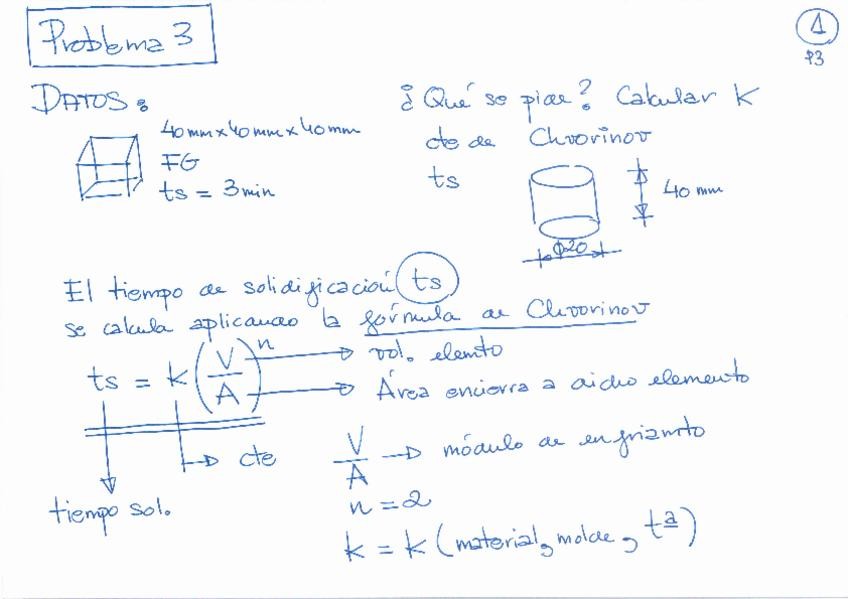 Problema 3
1
P3
DATOS:
40mm x 40mm x 40mm
FG
ts = 3min
¿Qué se pide? Calcular K
cte de Chvorinov
ts
40 mm
Φ20
El tiempo de solidificación ts
se calcula aplicando la fórmula de Chvorinov
ts = k (V/A)^n
vol. elemto
Área encierra a dicho elemento
cte
V/A → módulo de enfriamto
tiempo sol.
n = 2
k = k (material, molde, tª)